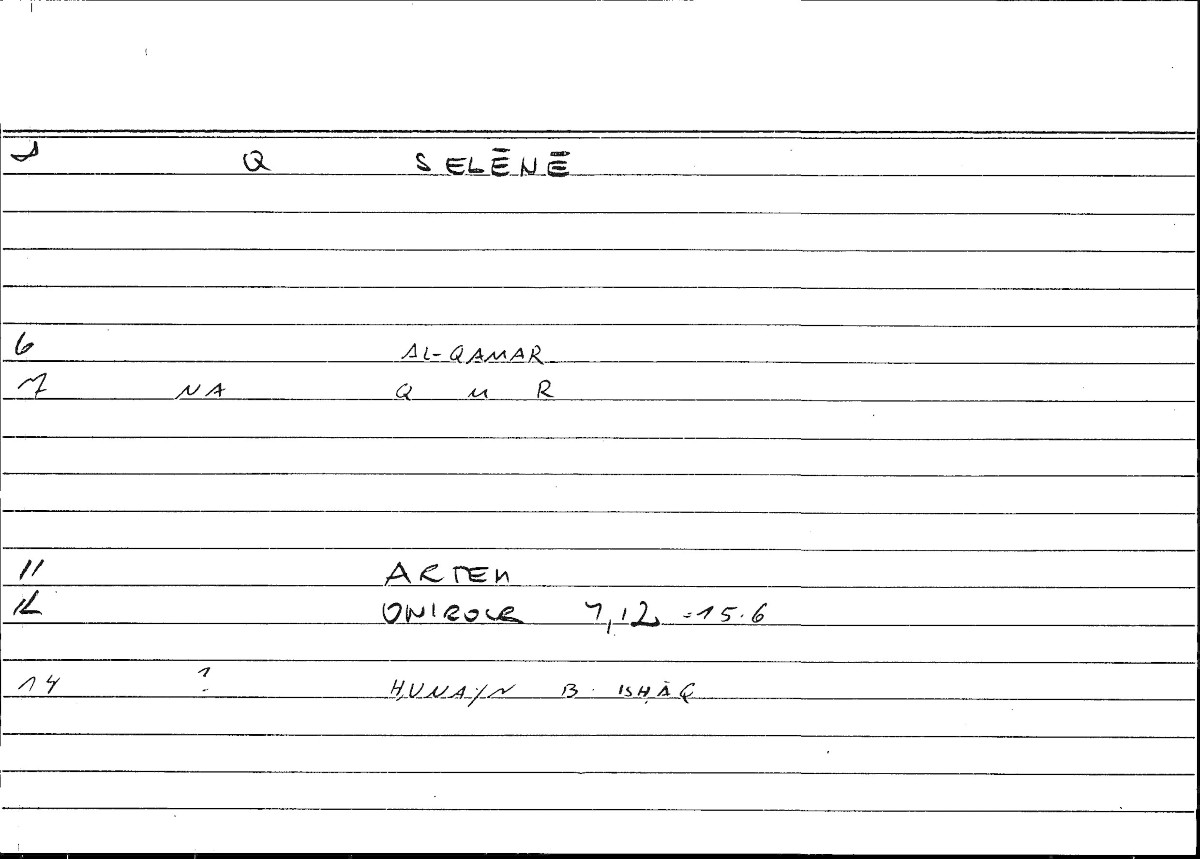 1 Q SELĒNĒ
6 AL-QAMAR
7 NA Q M R
11 ARTEM
12 ONIROCR 1,12 =15.6
14 ? ḤUNAYN B. ISḤĀQ